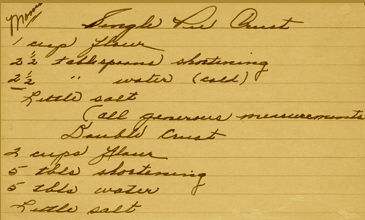 Mom's
Single Pie Crust
1 cup flour
2 1/2 tablespoons shortening
2 1/2 " water (cold)
Little salt
(all generous measurements
Double Crust
2 cups flour
5 tbls shortening
5 tbls water
Little salt